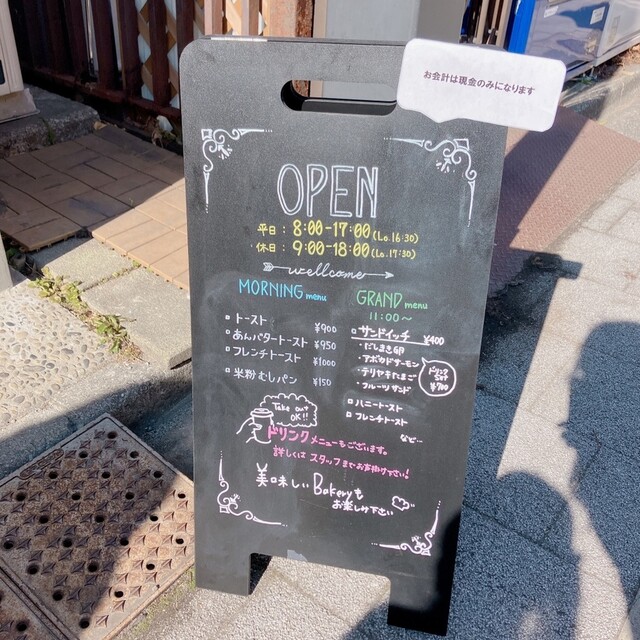 お会計は現金のみになります
OPEN
平日 : 8:00-17:00 (Lo.16:30)
休日 : 9:00-18:00 (Lo.17:30)
wellcome
MORNING menu
トースト ¥900
あんバタートースト ¥950
フレンチトースト ¥1000
米粉むしパン ¥150
GRAND menu
11:00～
サンドイッチ ¥400
・だしまき卵
・アボカドサーモン
・テリヤキたまご
・フルーツサンド
ドリンク
SET
¥700
ハニートースト
フレンチトースト
など…
Take out
OK!!
ドリンクメニューもございます。
詳しくは スタッフまでお声掛け下さい!
美味しい Bakeryも
お楽しみ下さい